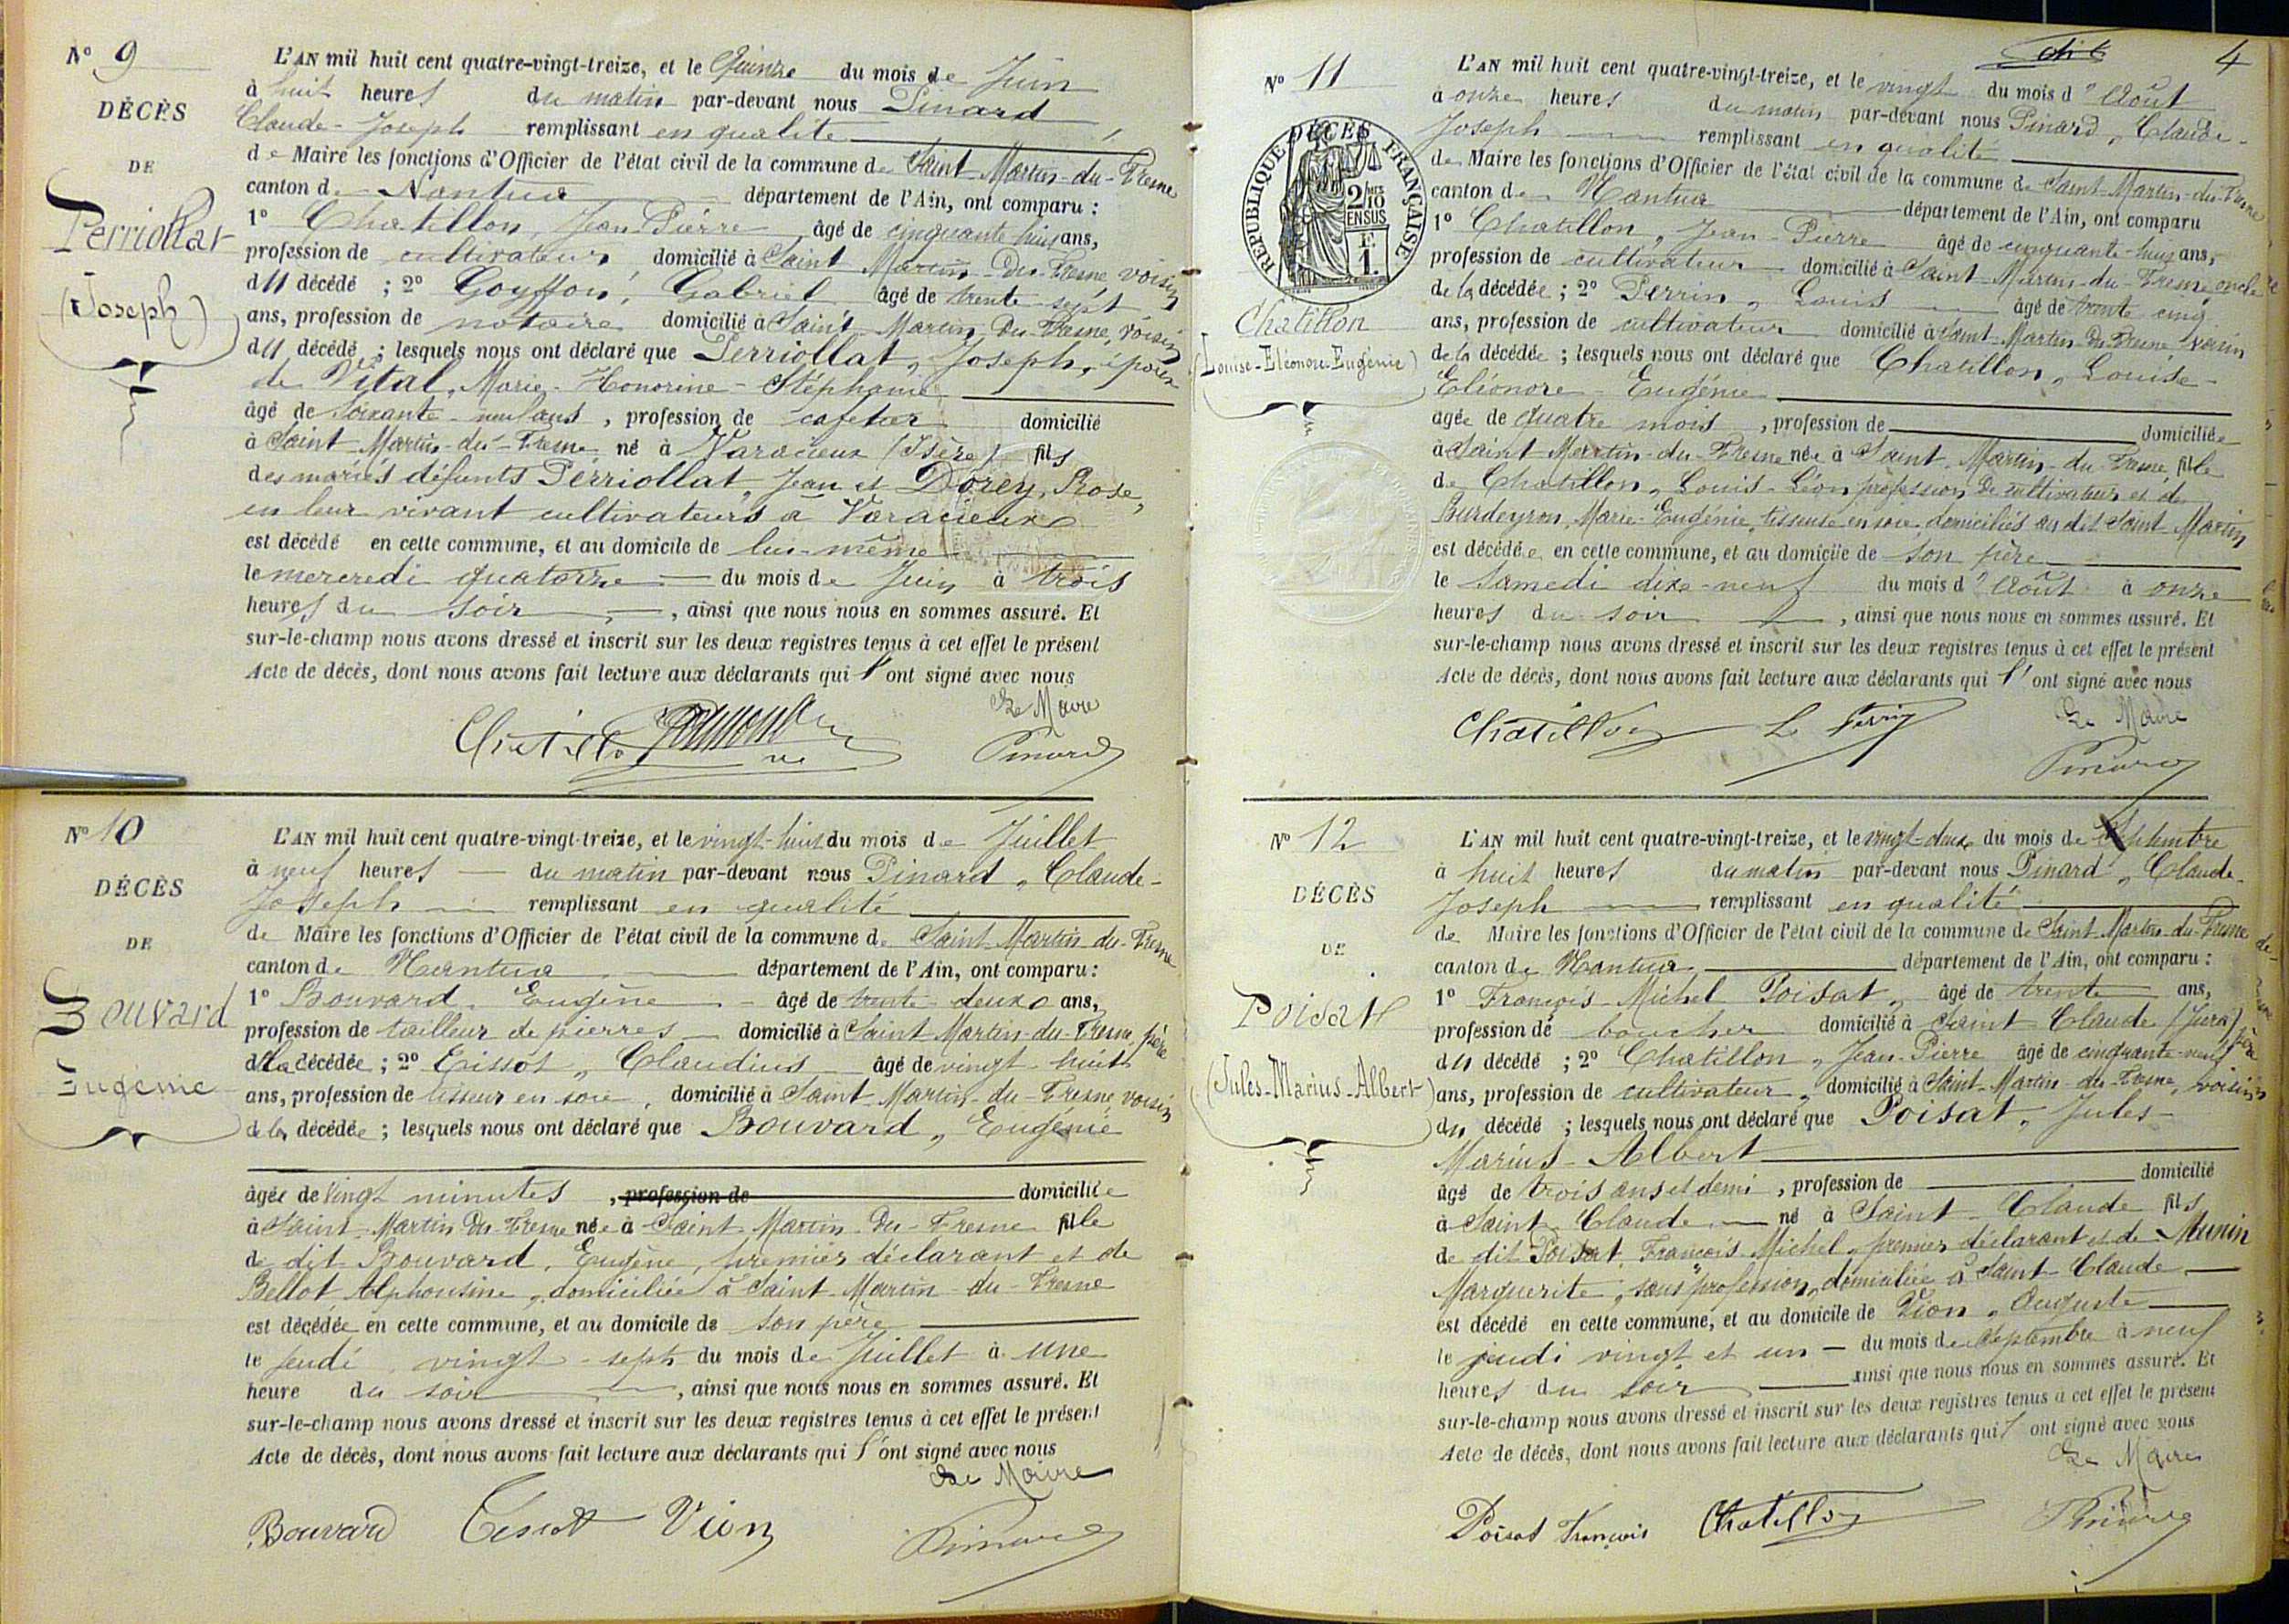 N° 9
DÉCÈS
DE
Perriollat
(Joseph)
L'AN mil huit cent quatre-vingt-treize, et le Quinze du mois de Juin
à huit heures du matin par-devant nous Pinard
Claude-Joseph remplissant en qualité
de Maire les fonctions d'Officier de l'état civil de la commune de Saint-Martin-du-Fresne
canton de Nantua département de l'Ain, ont comparu :
1° Chatillon, Jean Pierre âgé de cinquante huit ans,
profession de cultivateur domicilié à Saint Martin-du-Fresne, voisin
du décédé ; 2° Goyffon, Gabriel âgé de trente-sept
ans, profession de notaire domicilié à Saint Martin du-Fresne, voisin
du décédé ; lesquels nous ont déclaré que Perriollat, Joseph, époux
de Vital, Marie-Honorine-Stéphanie
âgé de soixante-neuf ans, profession de cafetier domicilié
à Saint Martin-du-Fresne né à Varacieux (Isère) fils
des mariés défunts Perriollat, Jean et Dorey, Rose,
en leur vivant cultivateurs à Varacieux
est décédé en cette commune, et au domicile de lui-même
le mercredi quatorze du mois de Juin à trois
heures du soir, ainsi que nous nous en sommes assuré. Et
sur-le-champ nous avons dressé et inscrit sur les deux registres tenus à cet effet le présent
Acte de décès, dont nous avons fait lecture aux déclarants qui l'ont signé avec nous
Le Maire
Chatillon Pinard
N° 10
DÉCÈS
DE
Bouvard
Eugénie
L'AN mil huit cent quatre-vingt-treize, et le vingt-huit du mois de Juillet
à neuf heures du matin par-devant nous Pinard, Claude-
Joseph remplissant en qualité
de Maire les fonctions d'Officier de l'état civil de la commune de Saint-Martin-du-Fresne
canton de Nantua département de l'Ain, ont comparu :
1° Bouvard, Eugène âgé de trente-deux ans,
profession de tailleur de pierres domicilié à Saint Martin-du-Fresne, père
de la décédée ; 2° Tissot, Claudius âgé de vingt-huit
ans, profession de tisseur en soie, domicilié à Saint-Martin-du-Fresne, voisin
de la décédée ; lesquels nous ont déclaré que Bouvard, Eugénie
âgée de vingt minutes, profession de domiciliée
à Saint-Martin du-Fresne née à Saint-Martin-du-Fresne fille
de dit Bouvard, Eugène, premier déclarant et de
Bellot Alphonsine, domiciliée à Saint-Martin-du-Fresne
est décédée en cette commune, et au domicile de son père
le jeudi vingt-sept du mois de Juillet à une
heure du soir, ainsi que nous nous en sommes assuré. Et
sur-le-champ nous avons dressé et inscrit sur les deux registres tenus à cet effet le présent
Acte de décès, dont nous avons fait lecture aux déclarants qui l'ont signé avec nous
Le Maire
Bouvard Tissot Vion Pinard
dit 4
N° 11
DÉCÈS
RÉPUBLIQUE FRANÇAISE
2/10 EN SUS
F. 1.
Chatillon
(Louise-Eléonore-Eugénie)
L'AN mil huit cent quatre-vingt-treize, et le vingt du mois d'Août
à onze heures du matin par-devant nous Pinard, Claude-
Joseph remplissant en qualité
de Maire les fonctions d'Officier de l'état civil de la commune de Saint-Martin-du-Fresne
canton de Nantua département de l'Ain, ont comparu
1° Chatillon, Jean-Pierre âgé de cinquante-huit ans,
profession de cultivateur domicilié à Saint-Martin-du-Fresne oncle
de la décédée ; 2° Perrin, Louis âgé de trente-cinq
ans, profession de cultivateur domicilié à Saint-Martin-du-Fresne voisin
de la décédée ; lesquels nous ont déclaré que Chatillon, Louise-
Eléonore-Eugénie
âgée de quatre mois, profession de domiciliée
à Saint Martin-du-Fresne née à Saint-Martin-du-Fresne fille
de Chatillon, Louis-Léon profession de cultivateur et de
Burdeyron, Marie-Eugénie, tisseuse en soie domiciliés au dit Saint-Martin
est décédée en cette commune, et au domicile de son père
le Samedi dix-neuf du mois d'Août à onze
heures du soir, ainsi que nous nous en sommes assuré. Et
sur-le-champ nous avons dressé et inscrit sur les deux registres tenus à cet effet le présent
Acte de décès, dont nous avons fait lecture aux déclarants qui l'ont signé avec nous
Le Maire
Chatillon L Perrin Pinard
N° 12
DÉCÈS
DE
Poisat
(Jules-Marius-Albert)
L'AN mil huit cent quatre-vingt-treize, et le vingt-deux du mois de Septembre
à huit heures du matin par-devant nous Pinard, Claude-
Joseph remplissant en qualité
de Maire les fonctions d'Officier de l'état civil de la commune de Saint-Martin-du-Fresne
canton de Nantua, département de l'Ain, ont comparu :
1° François-Michel Poisat, âgé de trente ans,
profession de boucher domicilié à Saint Claude (Jura) père
du décédé ; 2° Chatillon, Jean-Pierre âgé de cinquante-neuf
ans, profession de cultivateur, domicilié à Saint-Martin-du-Fresne, voisin
du décédé ; lesquels nous ont déclaré que Poisat, Jules-
Marius-Albert
âgé de trois ans et demi, profession de domicilié
à Saint-Claude né à Saint-Claude fils
de dit Poisat, François-Michel, premier déclarant et de Munin
Marguerite, sans profession, domiciliée à Saint-Claude
est décédé en cette commune, et au domicile de Vion, Auguste
le jeudi vingt et un du mois de Septembre à neuf
heures du soir ainsi que nous nous en sommes assuré. Et
sur-le-champ nous avons dressé et inscrit sur les deux registres tenus à cet effet le présent
Acte de décès, dont nous avons fait lecture aux déclarants qui l'ont signé avec nous
Le Maire
Poisat François Chatillon Pinard